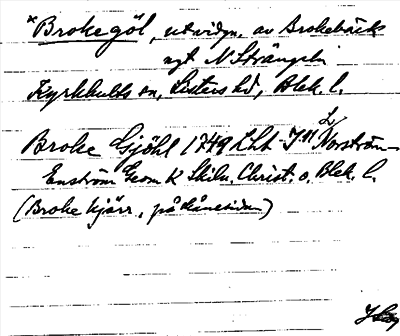 *Broke göl, utvidgn. av Brokebäck
ngt N Strängeln
Kyrkhults sn, Listers hd, Blek. l.
Broke Gjöhl 1749 Lht J11 Norström-
Enström Geom k Skiln. Christ. o. Blek. l.
(Broke kjärr, på skånesidan)